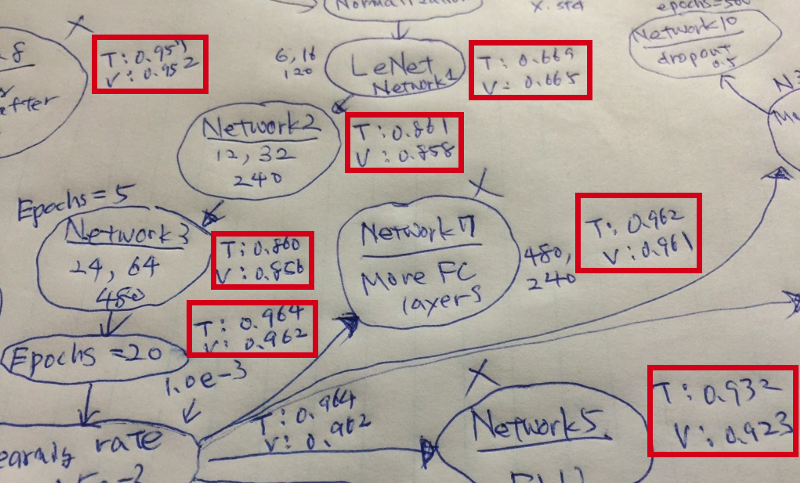 x.std
epochs=500
Network10
dropout
0.5
X
8
after
T: 0.957
V: 0.952
6, 16
120
LeNet
Network1
T: 0.669
V: 0.665
Network2
12, 32
240
T: 0.861
V: 0.858
Epochs=5
Network3
24, 64
480
T: 0.860
V: 0.856
X
Network7
More FC
layers
480,
240
T: 0.962
V: 0.961
T: 0.964
V: 0.962
Epochs=20
1.0e-3
T: 0.964
V: 0.962
rate
X
Network5
T: 0.932
V: 0.923